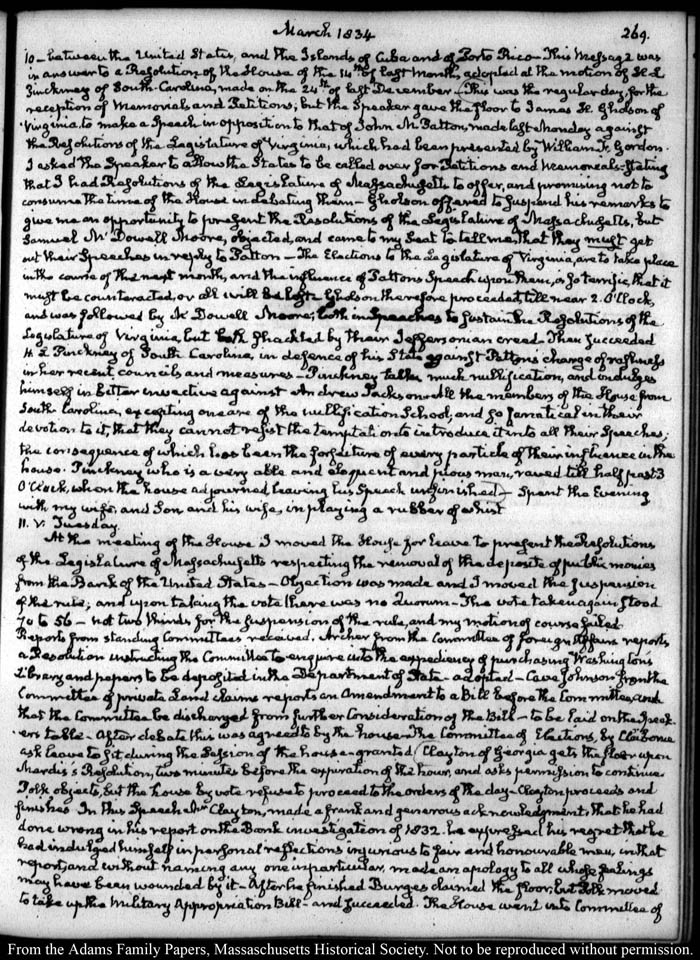 March 1834
269.
10 – between the United States, and the Islands of Cuba and of Porto Rico – This Message was
in answer to a Resolution of the House of the 14th of last Month, adopted at the motion of H. L
Pinckney of South Carolina, made on the 24th of last December – This was the regular day, for the
reception of Memorials and Petitions, but the Speaker gave the floor to James H. Gholson of
Virginia, to make a Speech in opposition to that of John M. Patton, made last Monday against
the Resolutions of the Legislature of Virginia, which had been presented by William F. Gordon.
I asked the Speaker to allow the States to be called over for Petitions and Memorials – stating
that I had Resolutions of the Legislature of Massachusetts to offer, and promising not to
consume the time of the House in debating them – Gholson offered to suspend his remarks to
give me an opportunity to present the Resolutions of the Legislature of Massachusetts, but
Samuel McDowell Moore, objected, and came to my Seat to tell me, that they must get
out their Speeches in reply to Patton – The Elections to the Legislature of Virginia, are to take place
in the course of the next month, and the influence of Patton's Speech upon them, is so terrific, that it
must be counteracted, or all will be lost. Gholson therefore proceeded, till near 2. O'Clock,
and was followed by McDowell Moore; both in Speeches to sustain the Resolutions of the
Legislature of Virginia, but both shackled by their Jeffersonian creed. Then succeeded
H. L Pinckney of South Carolina, in defence of his State against Patton's charge of rashness
in her recent councils and measures – Pinckney talks much nullification, and indulges
himself in bitter invective against Andrew Jackson – All the members of the House from
South Carolina, excepting one are of the nullification School, and so fanatical in their
devotion to it, that they cannot resist the temptation to introduce it into all their Speeches;
the consequence of which has been the forfeiture of every particle of their influence in the
house. Pinckney who is a very able and eloquent and pious man, raved till half past 3
O'Clock, when the house adjourned, leaving his Speech unfinished – Spent the Evening
with my wife, and Son and his wife, in playing a rubber of whist
11. V. Tuesday.
At the meeting of the House I moved the House for leave to present the Resolutions
of the Legislature of Massachusetts respecting the removal of the deposits of public monies
from the Bank of the United States – Objection was made and I moved the suspension
of the rule; and upon taking the vote there was no Quorum – The vote taken again stood
70 to 56 – not two thirds for the suspension of the rule, and my motion of course failed.
Reports from standing Committees received. Archer from the Committee of foreign Affairs reports
a Resolution instructing the Committee to enquire into the expediency of purchasing Washington's
Library and papers to be deposited in the Department of State – adopted – Cave Johnson from the
Committee of private Land claims reports an Amendment to a Bill before the Committee, and
that the Committee be discharged from further Consideration of the Bill – to be laid on the Speak-
ers table – After debate this was agreed to by the house – The Committee of Elections, by Claiborne
ask leave to sit during the Session of the house – granted. Clayton of Georgia gets the floor upon
Mardis's Resolution, two minutes before the expiration of the hour, and asks permission to continue.
Polk objects, but the house by vote refuse to proceed to the orders of the day – Clayton proceeds and
finishes. In this Speech Mr Clayton, made a frank and generous acknowledgment, that he had
done wrong in his report on the Bank investigation of 1832. he expressed his regret that he
had indulged himself in personal reflections injurious to fair and honourable men, in that
report, and without naming any one in particular, made an apology to all whose feelings
may have been wounded by it – After he finished Burges claimed the floor, but Polk moved
to take up the Military Appropriation Bill – and succeeded. The House went into Committee of
From the Adams Family Papers, Massachusetts Historical Society. Not to be reproduced without permission.